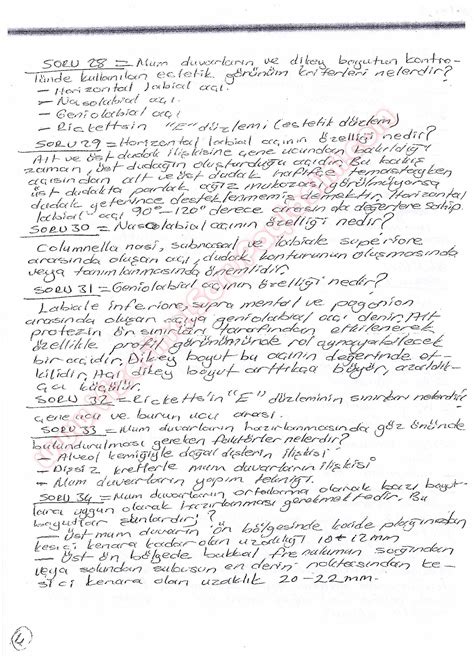 SORU 28 = Mum duvarların ve dikey boyutun kontro-
lünde kullanılan estetik görünüm kriterleri nelerdir?
- Horizontal labial açı
- Nasolabial açı
- Geniolabial açı
- Ricketts'in "E" düzlemi (estetik düzlem)
SORU 29 = Horizontal labial açının özelliği nedir?
Alt ve üst dudak ilişkisine çene ucundan bakıldığı
zaman, üst dudağın oluşturduğu açıdır. Bu bakış
açısından alt ve üst dudak hafifçe temastayken
üst dudakta parlak ağız mukozası görülmüyorsa
dudak yeterince desteklenmemiş demektir. Horizontal
labial açı 90°-120° derece arasında değerlere sahip
SORU 30 = Nasolabial açının özelliği nedir?
Columnella nasi, subnasal ve labiale superiore
arasında oluşan açı, dudak konturunun oluşmasında
veya tanımlanmasında önemlidir.
SORU 31 = Geniolabial açının özelliği nedir?
Labiale inferiore, supra mental ve pogonion
arasında oluşan açıya geniolabial açı denir. Alt
protezin ön sınırları tarafından etkilenerek
özellikle profil görünümünde rol oynayabilecek
bir açıdır. Dikey boyut bu açının değerinde et-
kilidir. Açı dikey boyut arttıkça büyür, azaldık-
ça küçülür.
SORU 32 = Ricketts'in "E" düzleminin sınırları nelerdir?
Çene ucu ve burun ucu arası.
SORU 33 = Mum duvarların hazırlanmasında göz önünde
bulundurulması gereken faktörler nelerdir?
- Alveol kemiğiyle doğal dişlerin ilişkisi
- Dişsiz kretlerle mum duvarların ilişkisi
- Mum duvarların yapım tekniği.
SORU 34 = Mum duvarların ortalama olarak bazı boyut-
lara uygun olarak hazırlanması gerekmektedir. Bu
boyutlar şunlardır?
- Üst mum duvarın ön bölgesinde kaide plağından
kesici kenara kadar olan uzaklığı 10-12 mm
- Üst ön bölgede bukkal frenulumun sağından
veya solundan subusun en derin noktasından ke-
sici kenara olan uzaklık 20-22 mm.
4